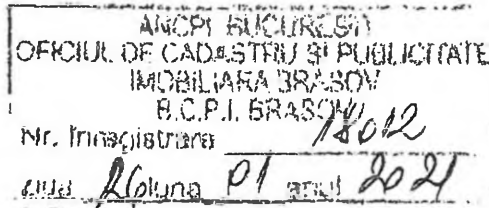 ANCPI BUCURESTI
OFICIUL DE CADASTRU SI PUBLICITATE
IMOBILIARA BRASOV
B.C.P.I. BRASOV
Nr. Inregistrare 18012
ziua 26 luna 01 anul 2021